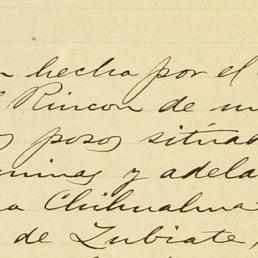 hecha por el
Rincon de
posos situa
minas y adela
Chihuahua
de Zubiate,